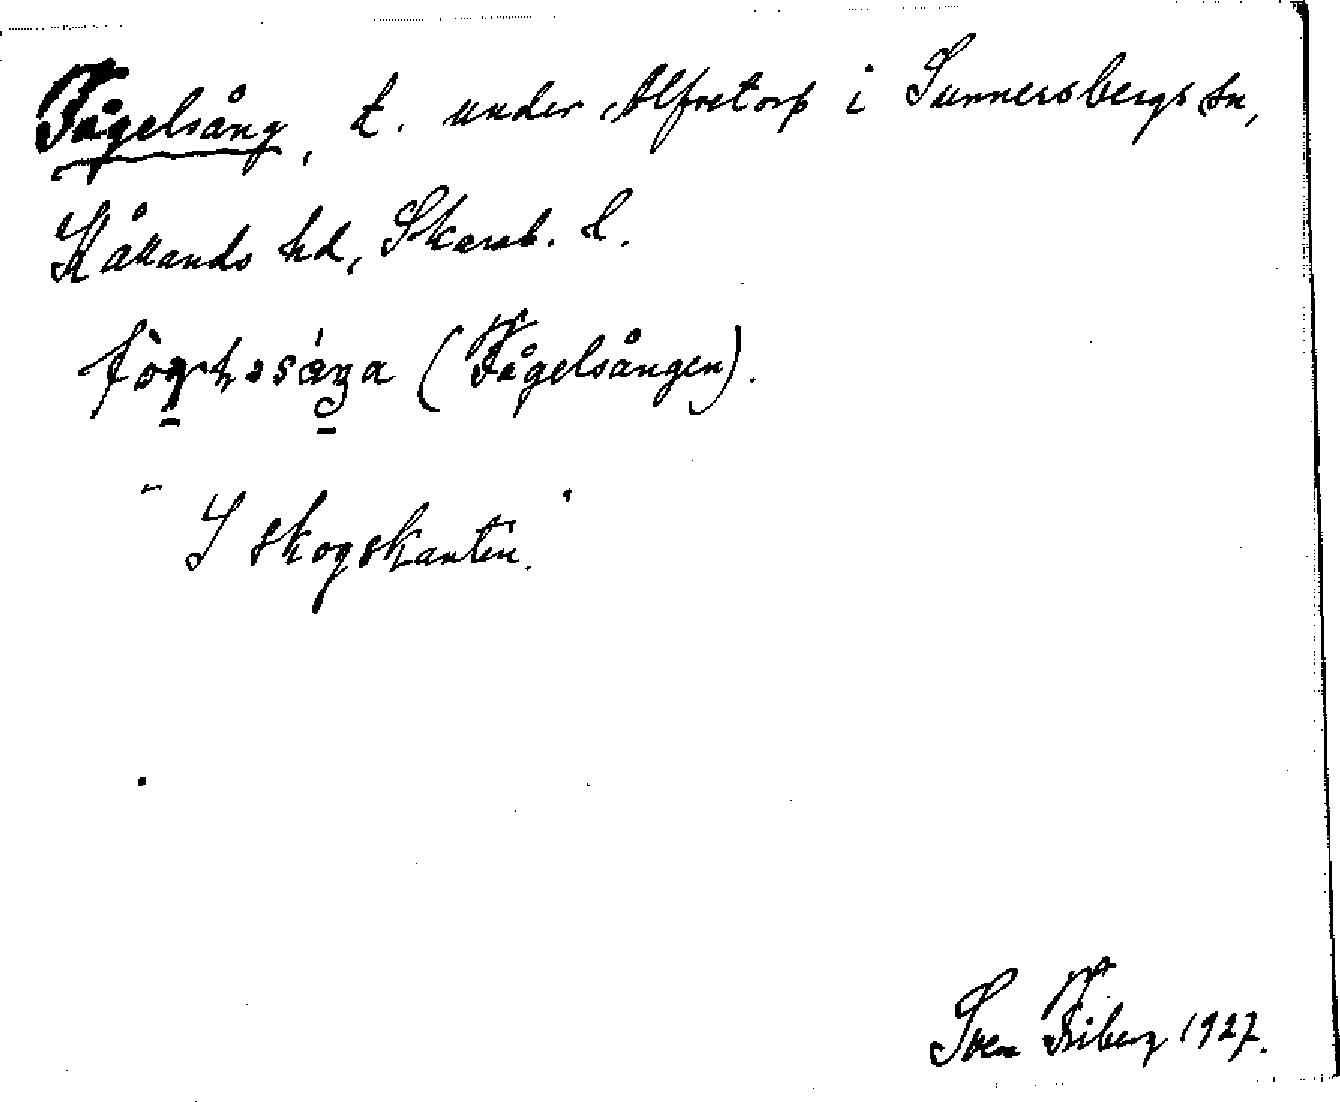 Fågelsång, t. under Alfretorp i Sunnersbergs sn,
Kållands hd, Skarab. l.
(Fågelsången).
"I skogskanten."
Sven Friberg 1927.